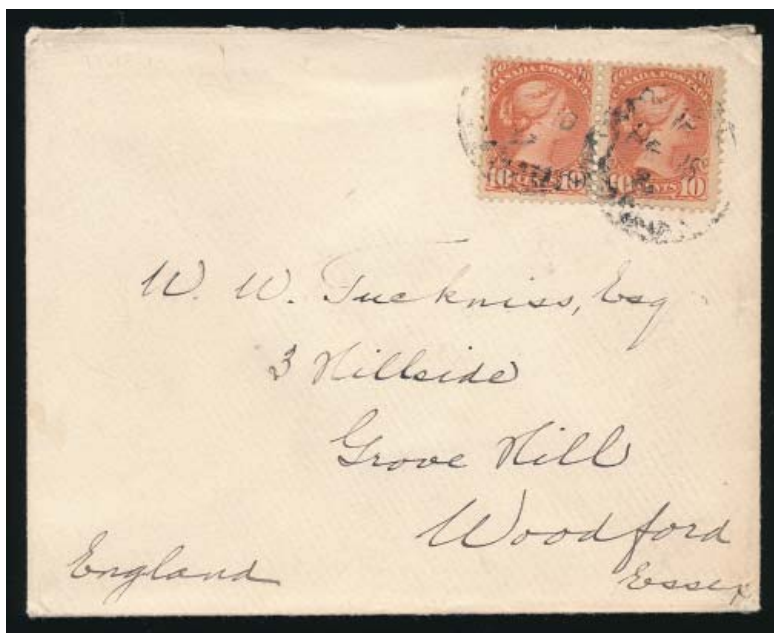 CANADA POSTAGE CANADA POSTAGE
10 CENTS 10 10 CENTS 10
W. W. Tuckniss, Esq
3 Hillside
Grove Hill
Woodford
Essex
England